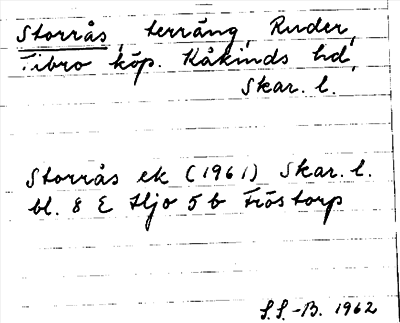 Storrås, terräng, Ruder,
Tibro köp. Kåkinds hd,
Skar. l.
Storrås ek (1961) Skar. l.
bl. 8 E Hjo 5 b Fröstorp
S.S.-B. 1962